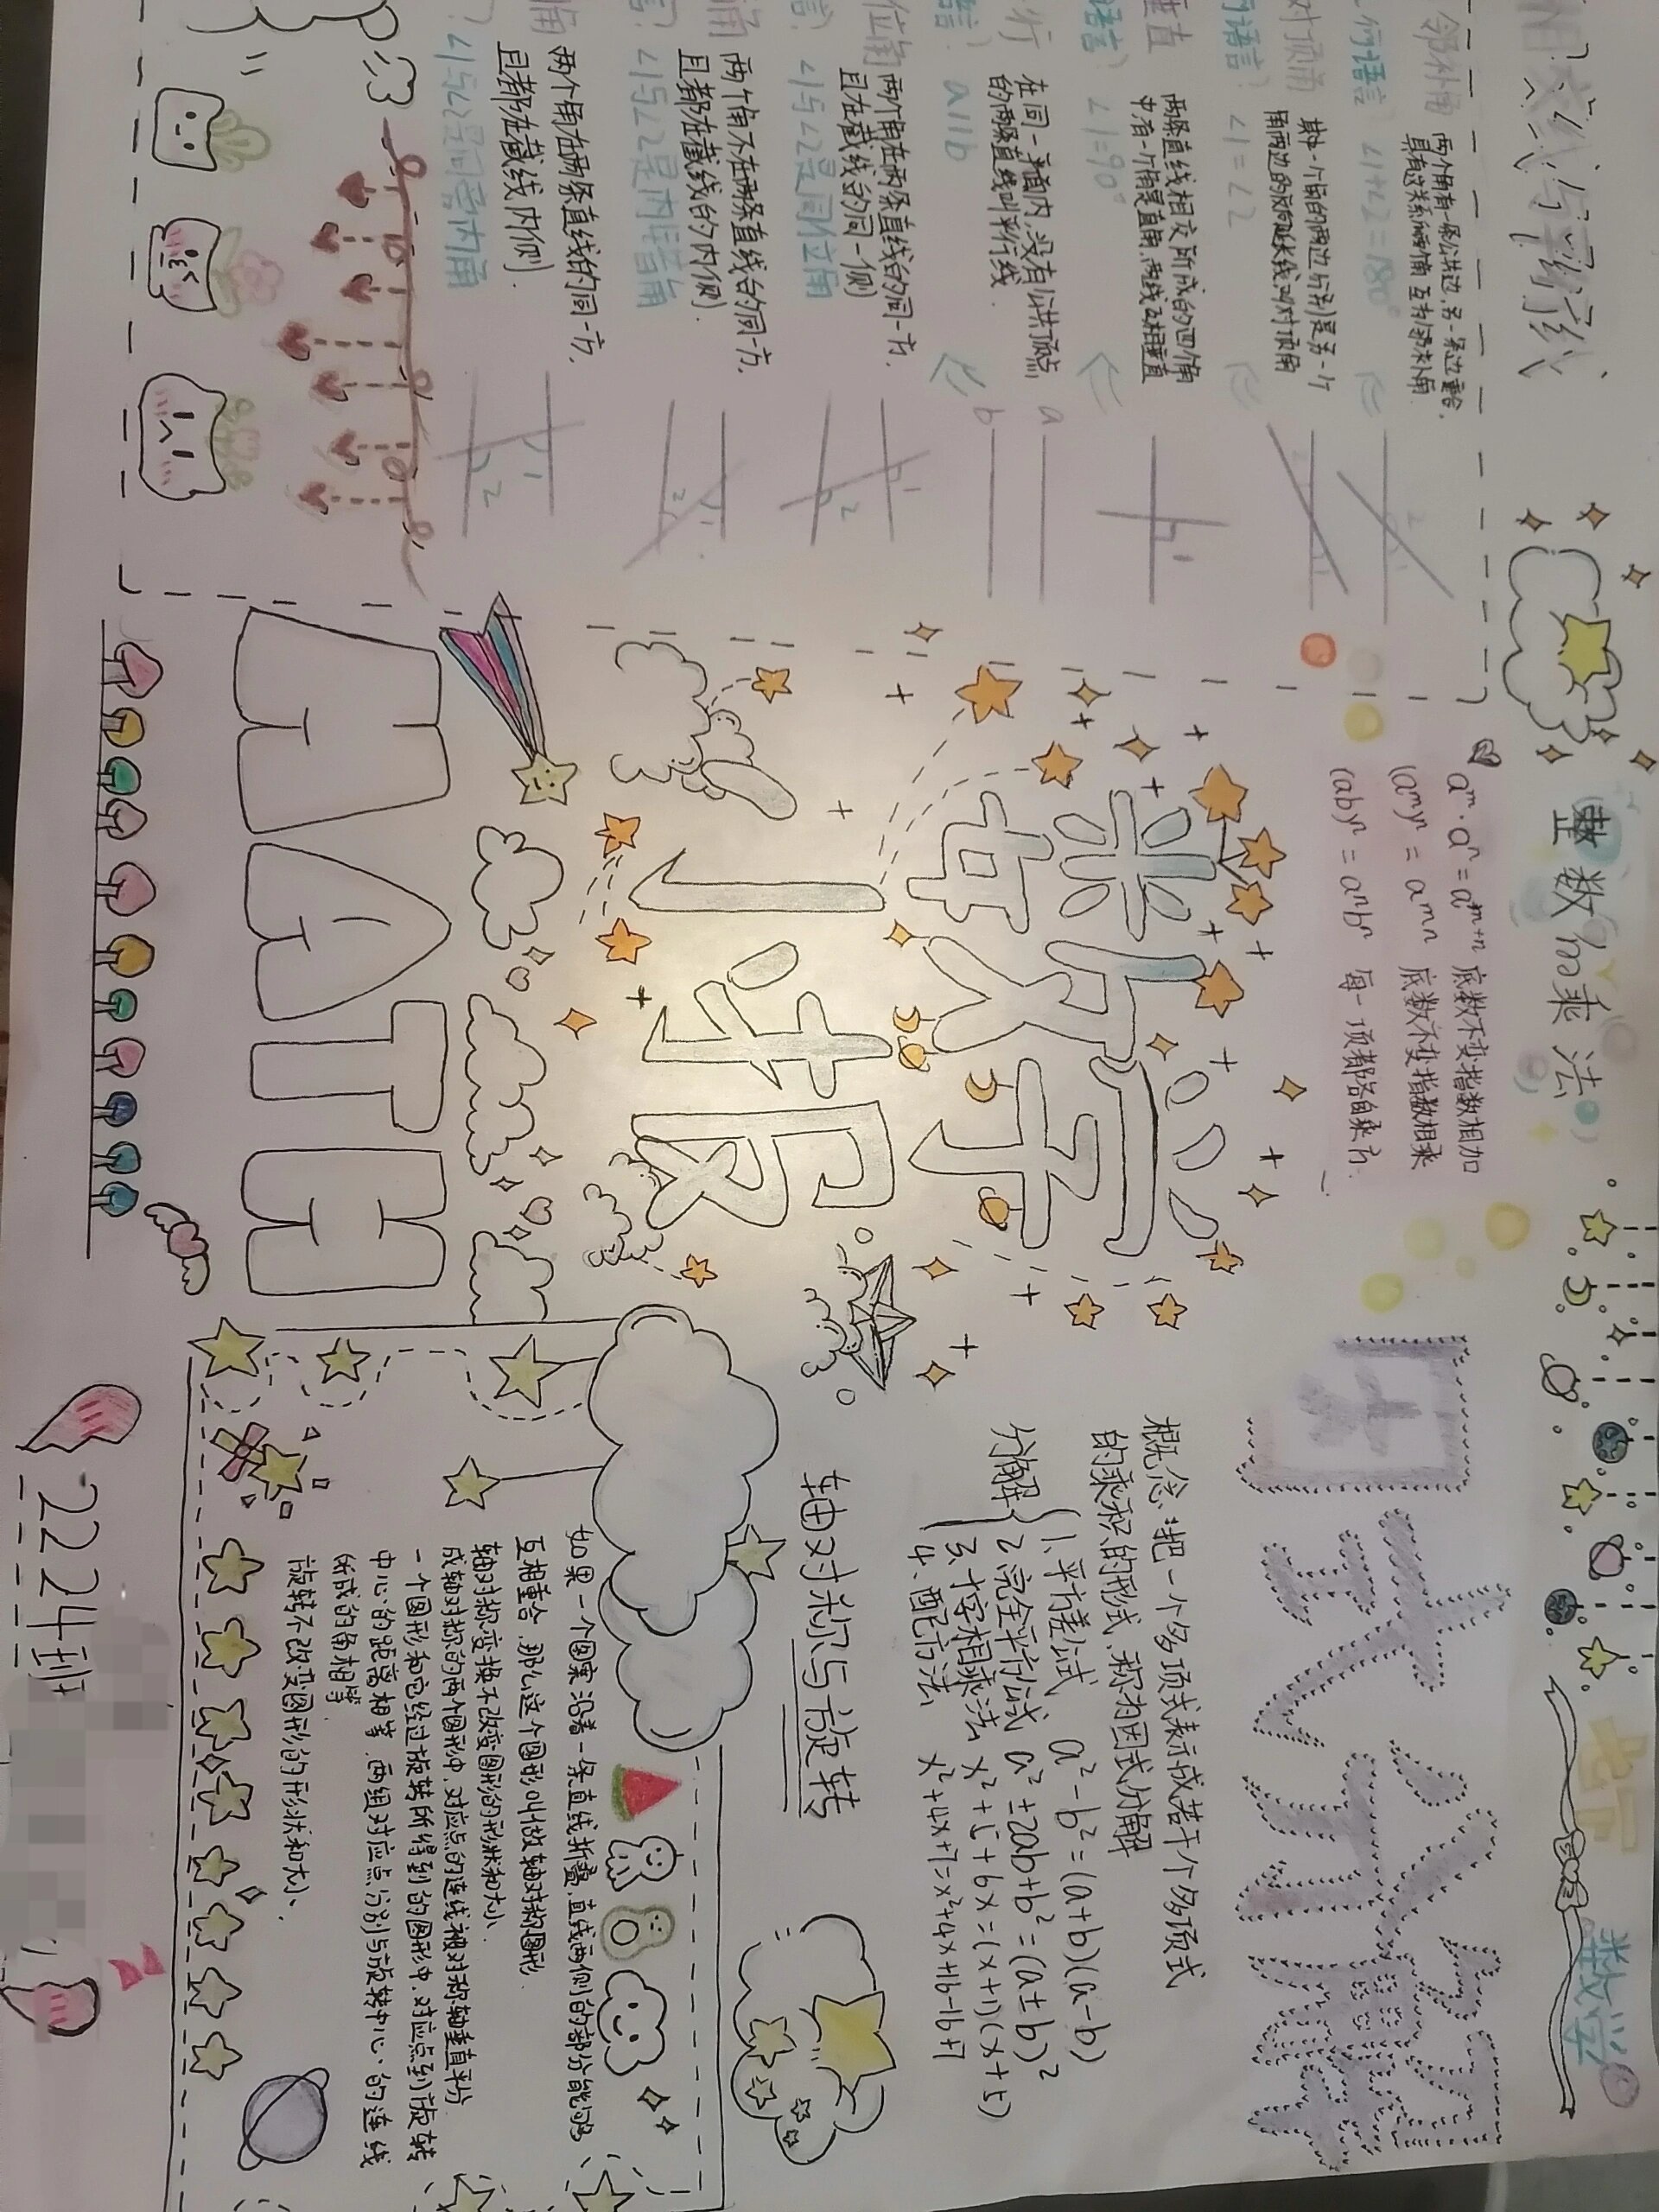 相交与平行线
邻补角 两个角有一条公共边,另一条边重合,
具有这关系的两角 互为邻补角
几何语言: ∠1+∠2=180°
对顶角 其中一个角的两边分别是另一个
角两边的反向延长线,叫对顶角
何语言: ∠1=∠2
垂直 两条直线相交所成的四角
中有一个角是直角,两线互相垂直
语言: ∠1=90°
行 在同一平面内,没有公共顶点
的两条直线叫平行线
言: a11b
a
b
位角 两个角在两条直线的同一方,
且在截线的同一侧
言: ∠1与∠2是同位角
角 两个角不在两条直线的同一方,
且都在截线的内侧.
∠1与∠2是内错角
角 两个角在两条直线的同一方,
且都在截线内侧.
∠1与∠2是同旁内角
整数的乘法
aᵐ·aⁿ=aᵐ⁺ⁿ 底数不变指数相加
(aᵐ)ⁿ=aᵐⁿ 底数不变指数相乘
(ab)ⁿ=aⁿbⁿ 每一项都各自乘方.
数学
小报
MATH
数学
因式分解
概念:把一个多项式表示成若干个多项式
的乘积的形式,称为因式分解
分解
1、平方差公式 a²-b²=(a+b)(a-b)
2 完全平方公式 a²±2ab+b²=(a±b)²
3、十字相乘法 x²+5+6x=(x+1)(x+5)
4、配方法 x²+4x+7=x²+4x+16-16+7
轴对称与旋转
如果一个图案沿着一条直线折叠,直线两侧的部分能够
互相重合,那么这个图形叫做轴对称图形.
轴对称变换不改变图形的形状和大小.
成轴对称的两个图形中,对应点的连线被对称轴垂直平分
一个图形和它经过旋转所得到的图形中,对应点到旋转
中心的距离相等,两组对应点分别与旋转中心的连线
所成的角相等
旋转不改变图形的形状和大小.
2224班